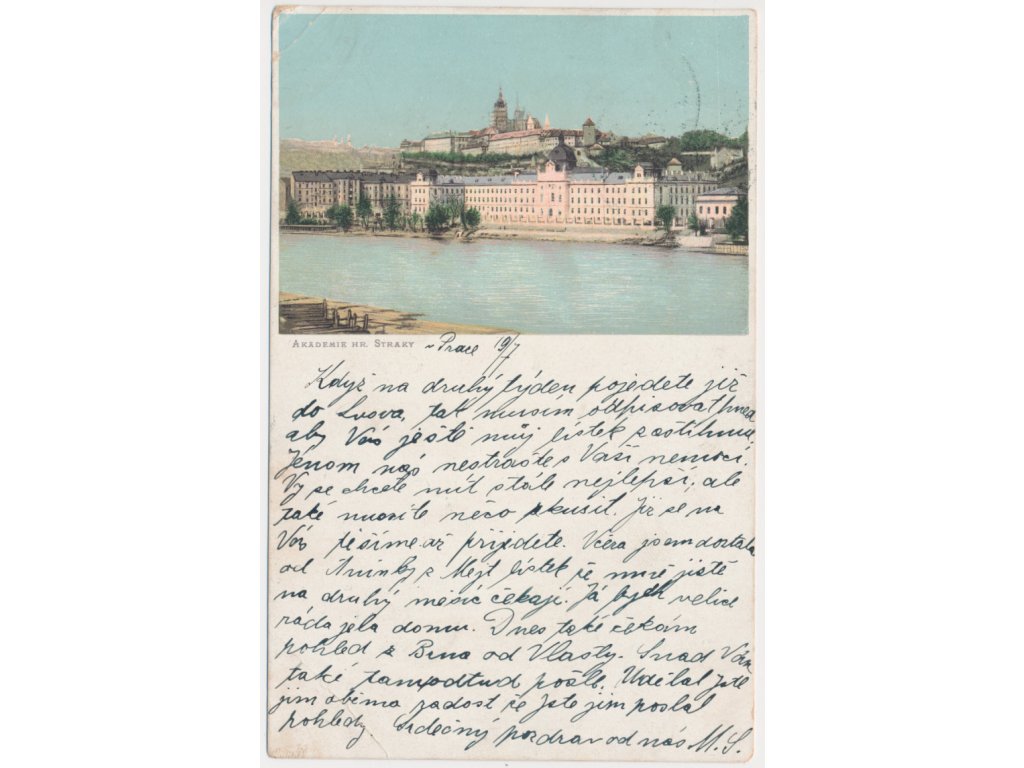 AKADEMIE HR. STRAKY v Praze 19/7
Když na druhý týden pojedete již
do Lvova, tak musím odpisovat hned
aby Vás ještě můj lístek zastihnul.
Jenom nás nestrašte s Vaší nemocí.
Vy se chcete mít stále nejlepší, ale
také musíte něco zkusit. Již se na
Vás těšíme až přijedete. Včera jsem dostala
od Aninky z Mýt lístek že mně jistě
na druhý měsíc čekají. Já bych velice
ráda jela domu. Dnes také čekám
pohled z Brna od Vlasty. Snad Vám
také tamodtud pošle. Udělal jste
jim oběma radost že jste jim poslal
pohledy. Srdečný pozdrav od nás M. S.